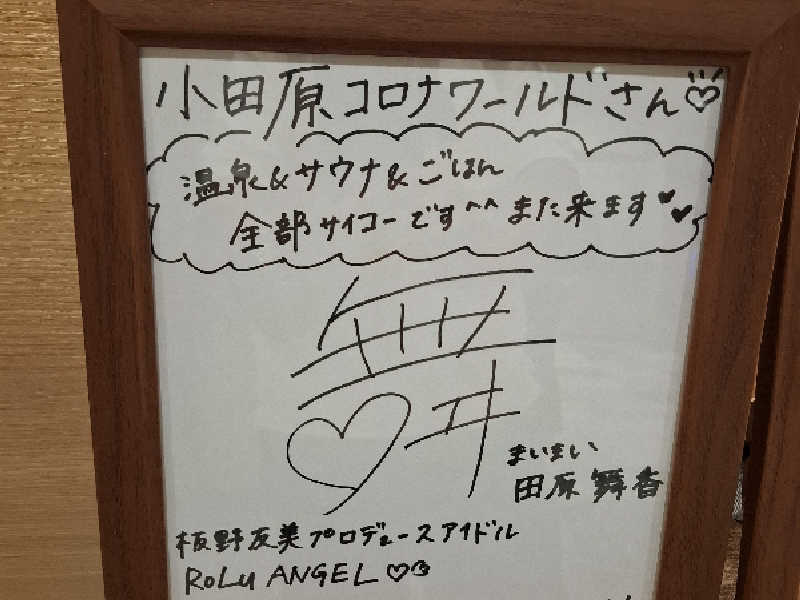 小田原コロナワールドさん♡
温泉&サウナ&ごはん
全部サイコーです^^また来ます♥♥
舞
まいまい
田原舞香
板野友美プロデュースアイドル
RoLu ANGEL♡